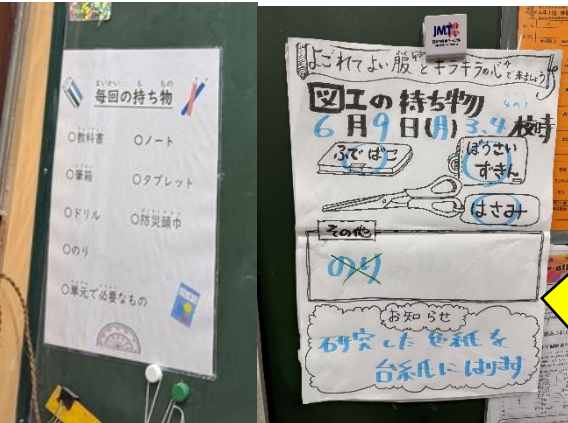 まいかい も もの
毎回の持ち物
○教科書 ○ノート
○筆箱 ○タブレット
○ドリル ○防災頭巾
○のり
○単元で必要なもの
JMT
よごれてよい服とキラキラの心で来ましょう
図工の持ち物
4の1
6月9日(月)3.4校時
ふでばこ
ぼうさい
ずきん
はさみ
その他
のり
お知らせ
研究した色紙を
台紙にはります